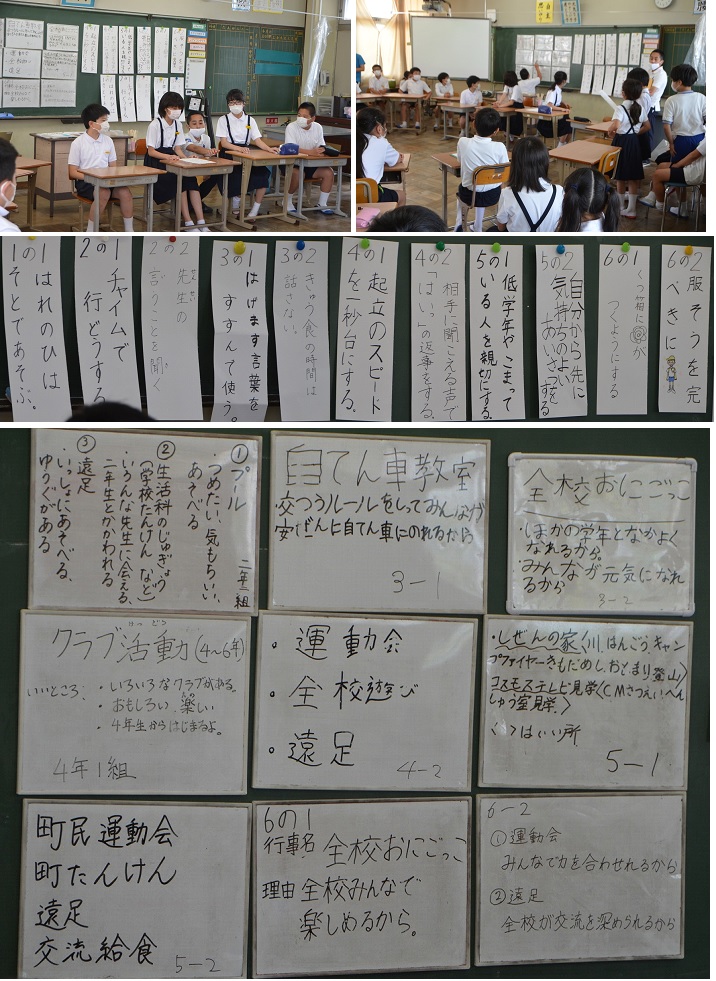 1の1
はれのひは
そとであそぶ。
2の1
チャイムで
行どうする
2の2
先生の
言うことを聞く
3の1
はげます言葉を
すすんで使う。
3の2
きゅう食の時間は
話さない。
4の1
起立のスピード
を一秒台にする。
4の2
相手に聞こえる声で
「はいっ」の返事をする。
5の1
低学年やこまって
いる人を親切にする。
5の2
自分から先に
気持ちのよい
あいさつをする
6の1
くつ箱に
が
つくようにする
6の2
服そうを完
ぺきに
①プール 二年二組
・つめたい、気もちいい、
あそべる
②生活科のじゅぎょう
(学校たんけんなど)
・いろんな先生に会える、
二年生とかかわれる
③遠足
・いっしょにあそべる、
ゆうぐがある
自てん車教室
・交つうルールをしってみんなが
安ぜんに自てん車にのれるから
3-1
全校おにごっこ
・ほかの学年となかよく
なれるから。
・みんなが元気になれ
るから
3-2
クラブ活動(4~6年)
いいところ
・いろいろなクラブがある。
・おもしろい、楽しい
・4年生からはじまるよ。
4年1組
・運動会
・全校遊び
・遠足
4-2
・しぜんの家〈川、はんごう、キャン
プファイヤーきもだめし、おとまり登山〉
コスモステレビ見学〈CMさつえいへん
しゅう室見学〉
〈 〉はいい所
5-1
町民運動会
町たんけん
遠足
交流給食
5-2
6の1
行事名 全校おにごっこ
理由 全校みんなで
楽しめるから。
6-2
①運動会
みんなで力を合わせれるから
②遠足
全校が交流を深められるから